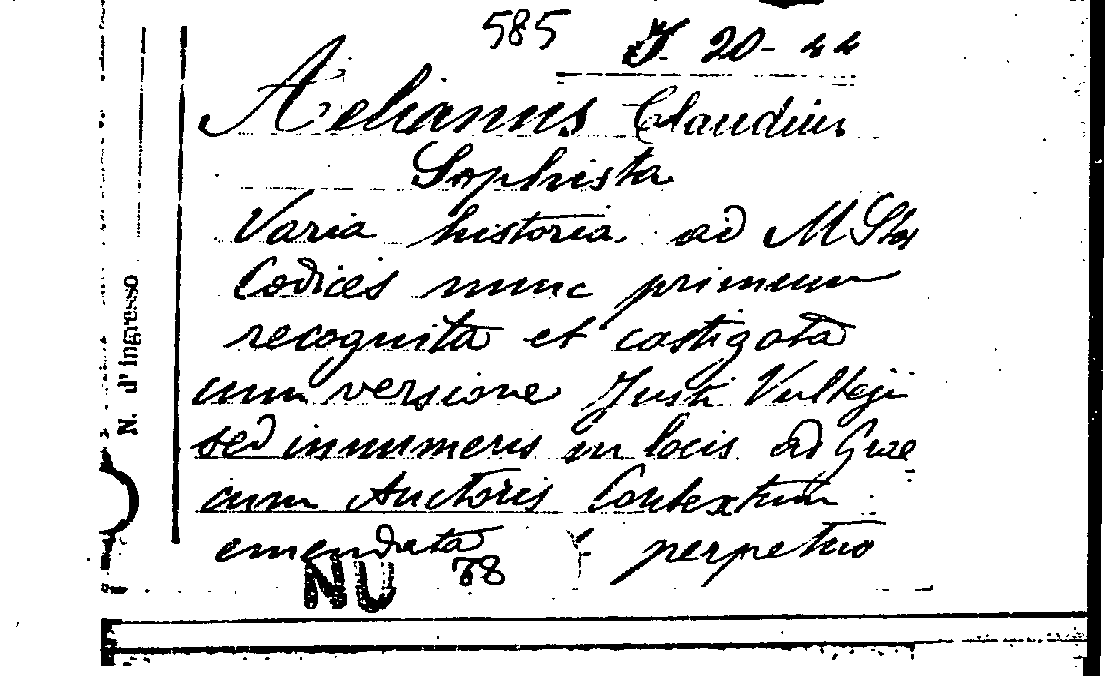 585 J. 20-44
Aelianus Claudius
Sophista
Varia historia ad MStos
Codices nunc primum
recognita et castigata
cum versione Justi Vulteji
sed innumeris in locis ad Grae
cum Auctoris Contextum
emendata & perpetuo
NU 78
N. d'ingresso